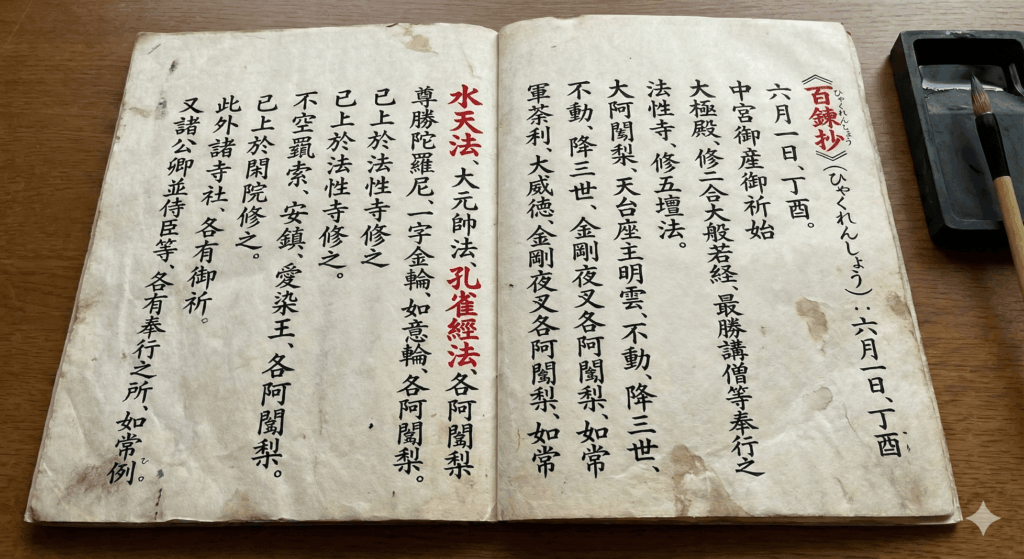 《百錬抄》(ひゃくれんしょう)：六月一日、丁酉
ひゃくれんしょう
六月一日、丁酉。
中宮御産御祈始
大極殿、修二合大般若経、最勝講僧等奉行之
法性寺、修五壇法。
大阿闍梨、天台座主明雲、不動、降三世、
不動、降三世、金剛夜叉各阿闍梨、如常
軍荼利、大威徳、金剛夜叉各阿闍梨、如常
水天法、大元帥法、孔雀經法、各阿闍梨
尊勝陀羅尼、一字金輪、如意輪、各阿闍梨。
已上於法性寺修之
已上於法性寺修之。
不空羂索、安鎮、愛染王、各阿闍梨。
已上於閑院修之。
此外諸寺社、各有御祈。
又諸公卿並侍臣等、各有奉行之所、如常例。